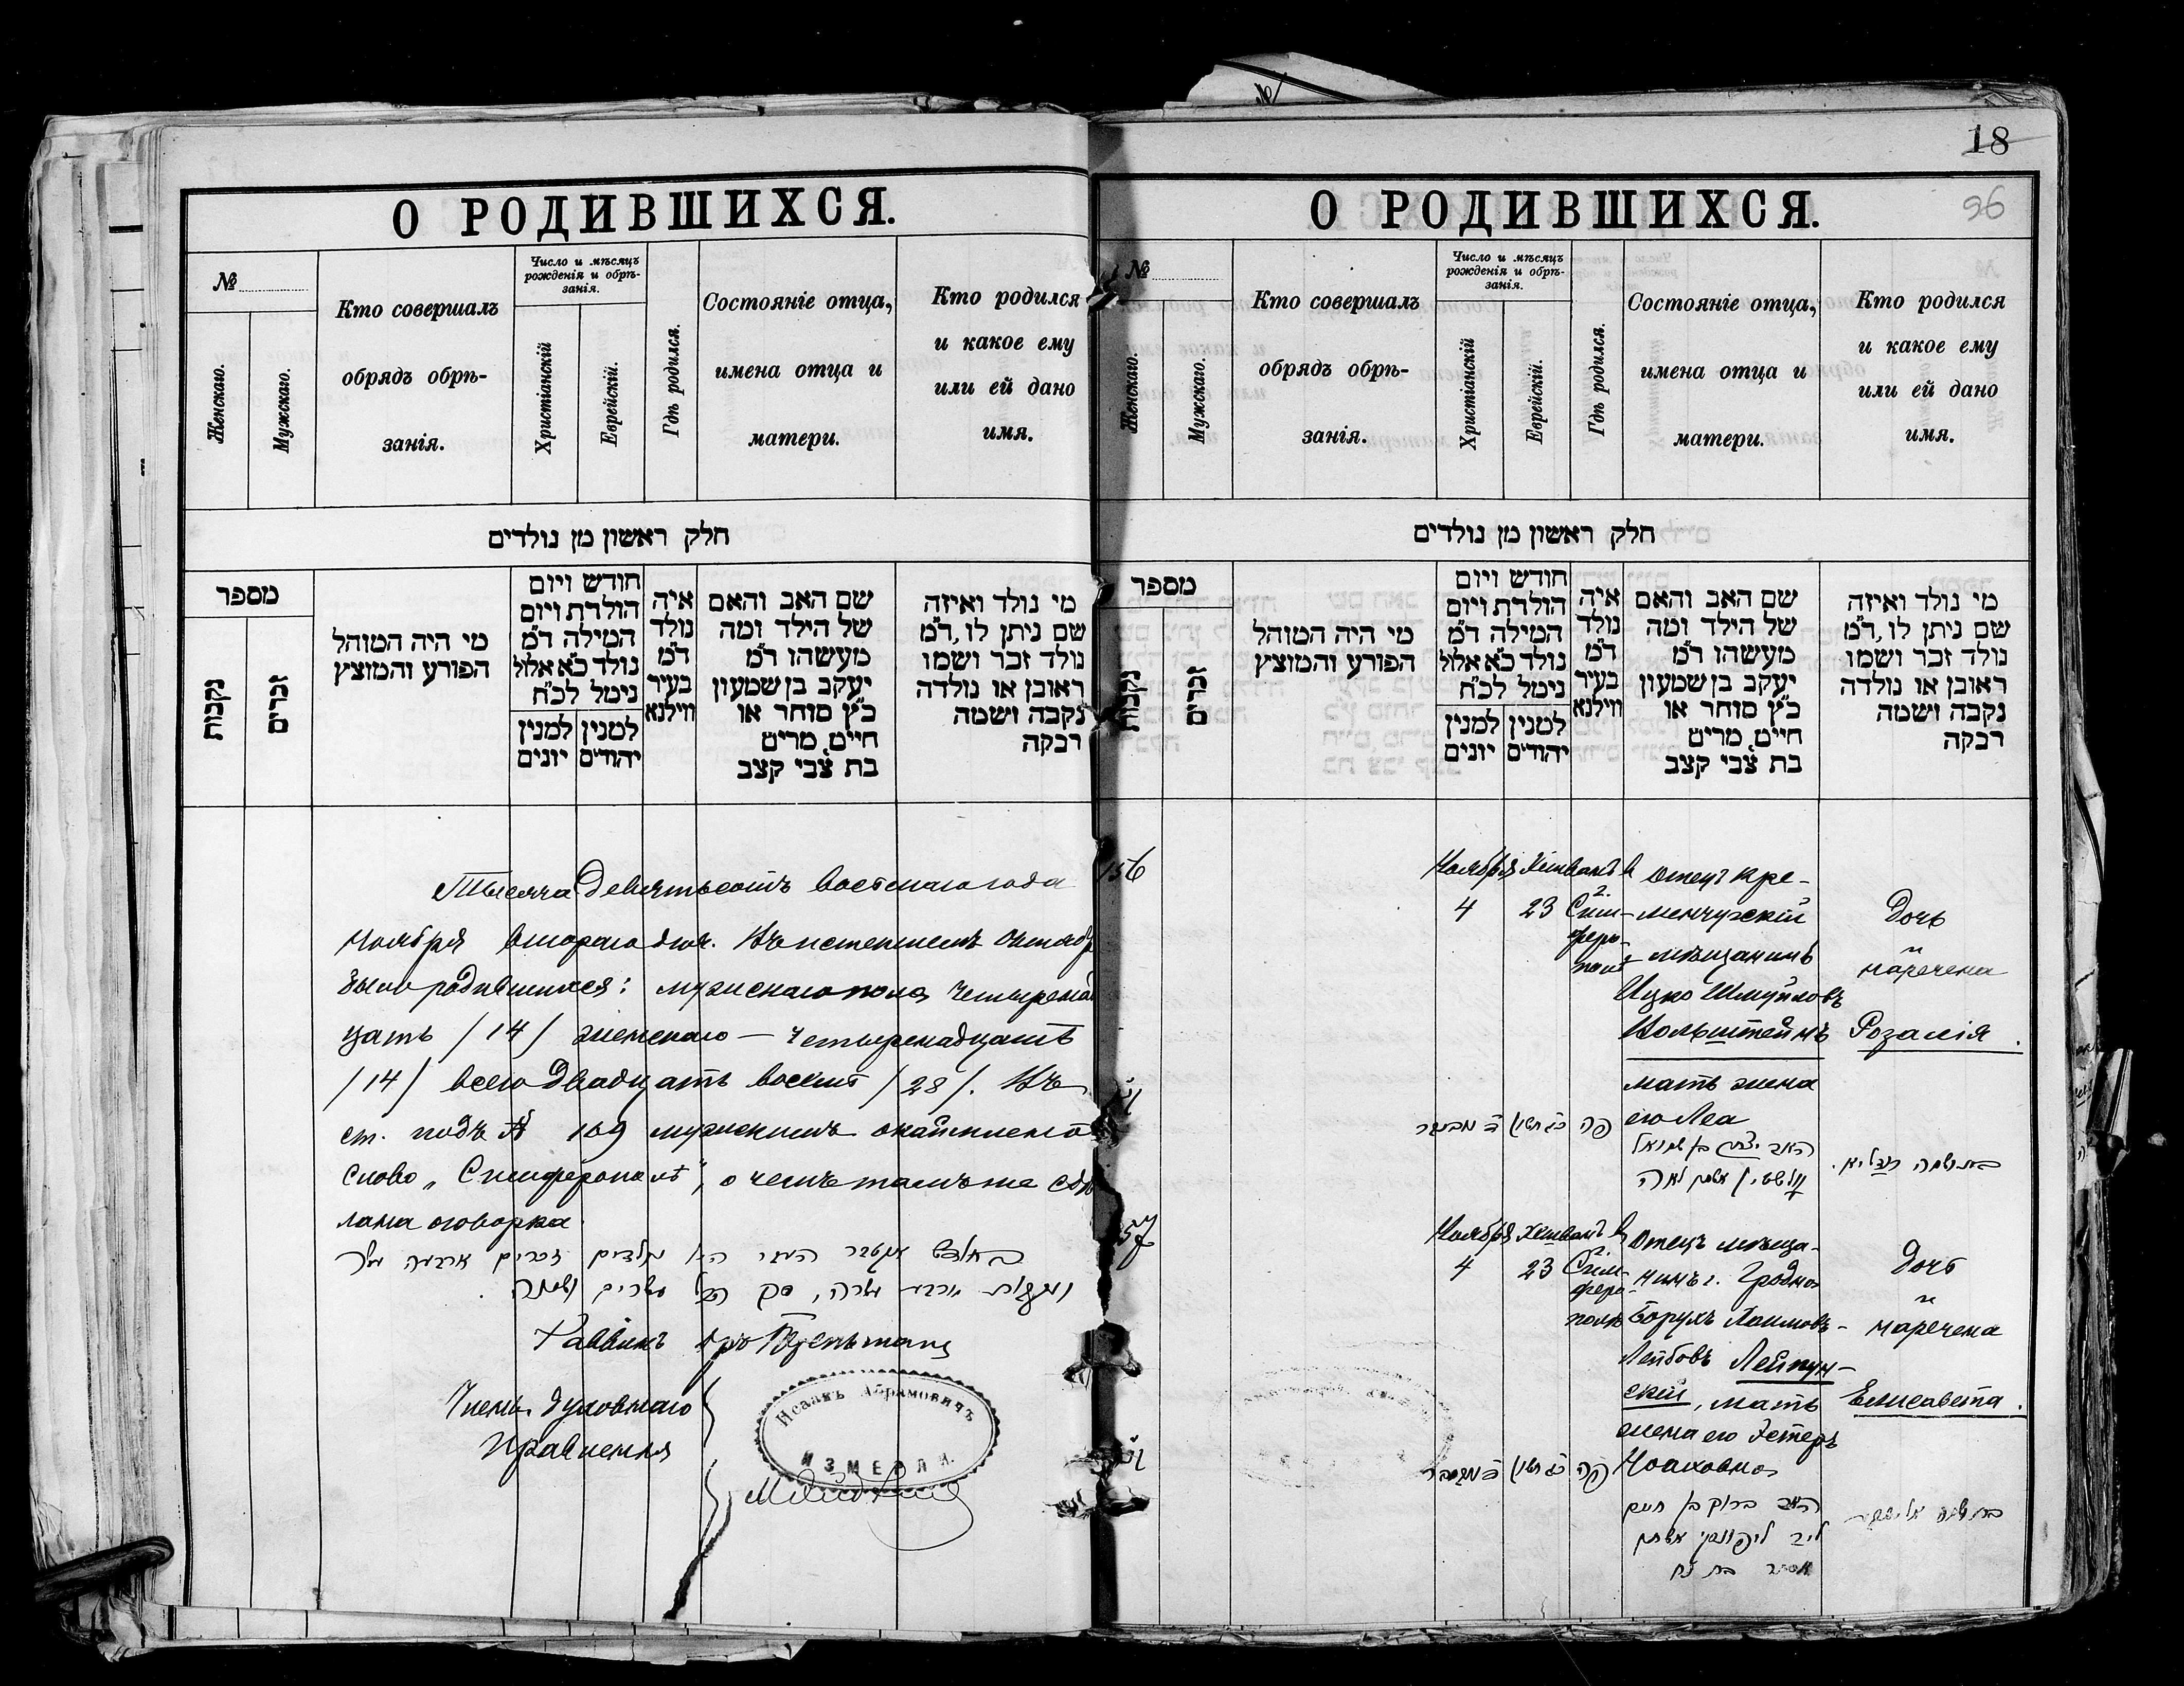 О РОДИВШИХСЯ.
№
Женскаго.
Мужскаго.
Кто совершалъ
обрядъ обрѣ-
занія.
Число и мѣсяцъ
рожденія и обрѣ-
занія.
Христіанскій
Еврейскій.
Гдѣ родился.
Состояніе отца,
имена отца и
матери.
Кто родился
и какое ему
или ей дано
имя.
חלק ראשון מן נולדים
מספר
נקבות
זכרים
מי היה המוהל
הפורע והמוצץ
חודש ויום
הולדת ויום
המילה ד״מ
נולד כ״א אלול
נימל לכ״ח
למנין יונים
למנין יהודים
איה
נולד
ד״מ
בעיר
ווילנא
שם האב והאם
של הילד ומה
מעשהו ד״מ
יעקב בן שמעון
כ״ץ סוחר או
חייט, מרים
בת צבי קצב
מי נולד ואיזה
שם ניתן לו, ד״מ
נולד זכר ושמו
ראובן או נולדה
נקבה ושמה
רבקה
Тысяча девятьсотъ
ноября второго дня. Въ истекшемъ Октябр
было родившихся: мужскаго пола четырнад
цать /14/ женскаго — четырнадцать
/14/ всего двадцать восемь /28/. Въ
ст. подъ № 169 мужскимъ
слово „Симферополь“, о чемъ тамъ же сдѣ
лана оговорка.
Раввинъ
Членъ духовнаго
Правленія
Исаакъ Абрамовичъ
ИЗМЕРЛИ
18
96
О РОДИВШИХСЯ.
№
Женскаго.
Мужскаго.
Кто совершалъ
обрядъ обрѣ-
занія.
Число и мѣсяцъ
рожденія и обрѣ-
занія.
Христіанскій
Еврейскій.
Гдѣ родился.
Состояніе отца,
имена отца и
матери.
Кто родился
и какое ему
или ей дано
имя.
חלק ראשון מן נולדים
מספר
נקבות
זכרים
מי היה המוהל
הפורע והמוצץ
חודש ויום
הולדת ויום
המילה ד״מ
נולד כ״א אלול
נימל לכ״ח
למנין יונים
למנין יהודים
איה
נולד
ד״מ
בעיר
ווילנא
שם האב והאם
של הילד ומה
מעשהו ד״מ
יעקב בן שמעון
כ״ץ סוחר או
חייט, מרים
בת צבי קצב
מי נולד ואיזה
שם ניתן לו, ד״מ
נולד זכר ושמו
ראובן או נולדה
נקבה ושמה
רבקה
156
Ноября
4
Хешванъ
23
в г.
Сим-
феро-
поль
Отецъ Кре-
менчугскій
мѣщанинъ
Ицко Шмуйловъ
Вольштейнъ
мать жена
его Леа
האב יצחק בן שמואל
וולשטיין אשתו לאה
Дочь
и
наречена
Розалія.
בת ושמה רוזליא.
57
Ноября
4
Хешванъ
23
в г.
Сим-
феро-
поль
Отецъ мѣща-
нинъ г. Гродно
Борухъ Хаимовъ-
Лейбовъ Лейпун-
скій, мать
жена его Эстеръ
Ноаховна
האב ברוך בן חיים
ליב ליפונסקי אשתו
אסתר בת נח
Дочь
и
наречена
Елисавета.